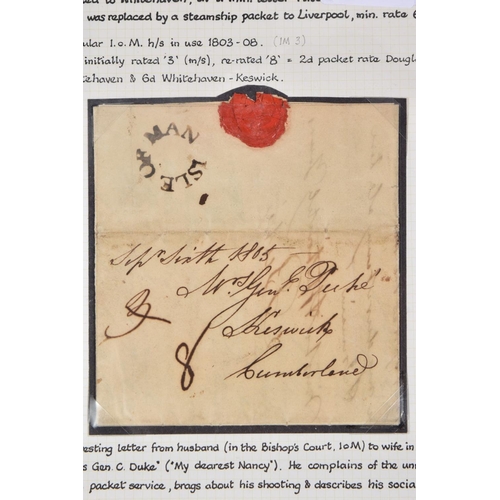 ed to Whitehaven, at a min. letter rate
was replaced by a steamship packet to Liverpool, min. rate 6
ular I.o.M. h/s in use 1803-08. (IM 3)
initially rated '3' (m/s), re-rated '8' = 2d packet rate Dougl
tehaven & 6d Whitehaven-Keswick.
ISLE OF MAN
Sepr Sixth 1805
Mrs Genl Duke
3
Keswick
8
Cumberland
esting letter from husband (in the Bishop's Court, IoM) to wife in
s Gen. C. Duke" ("My dearest Nancy"). He complains of the un
packet service, brags about his shooting & describes his socia